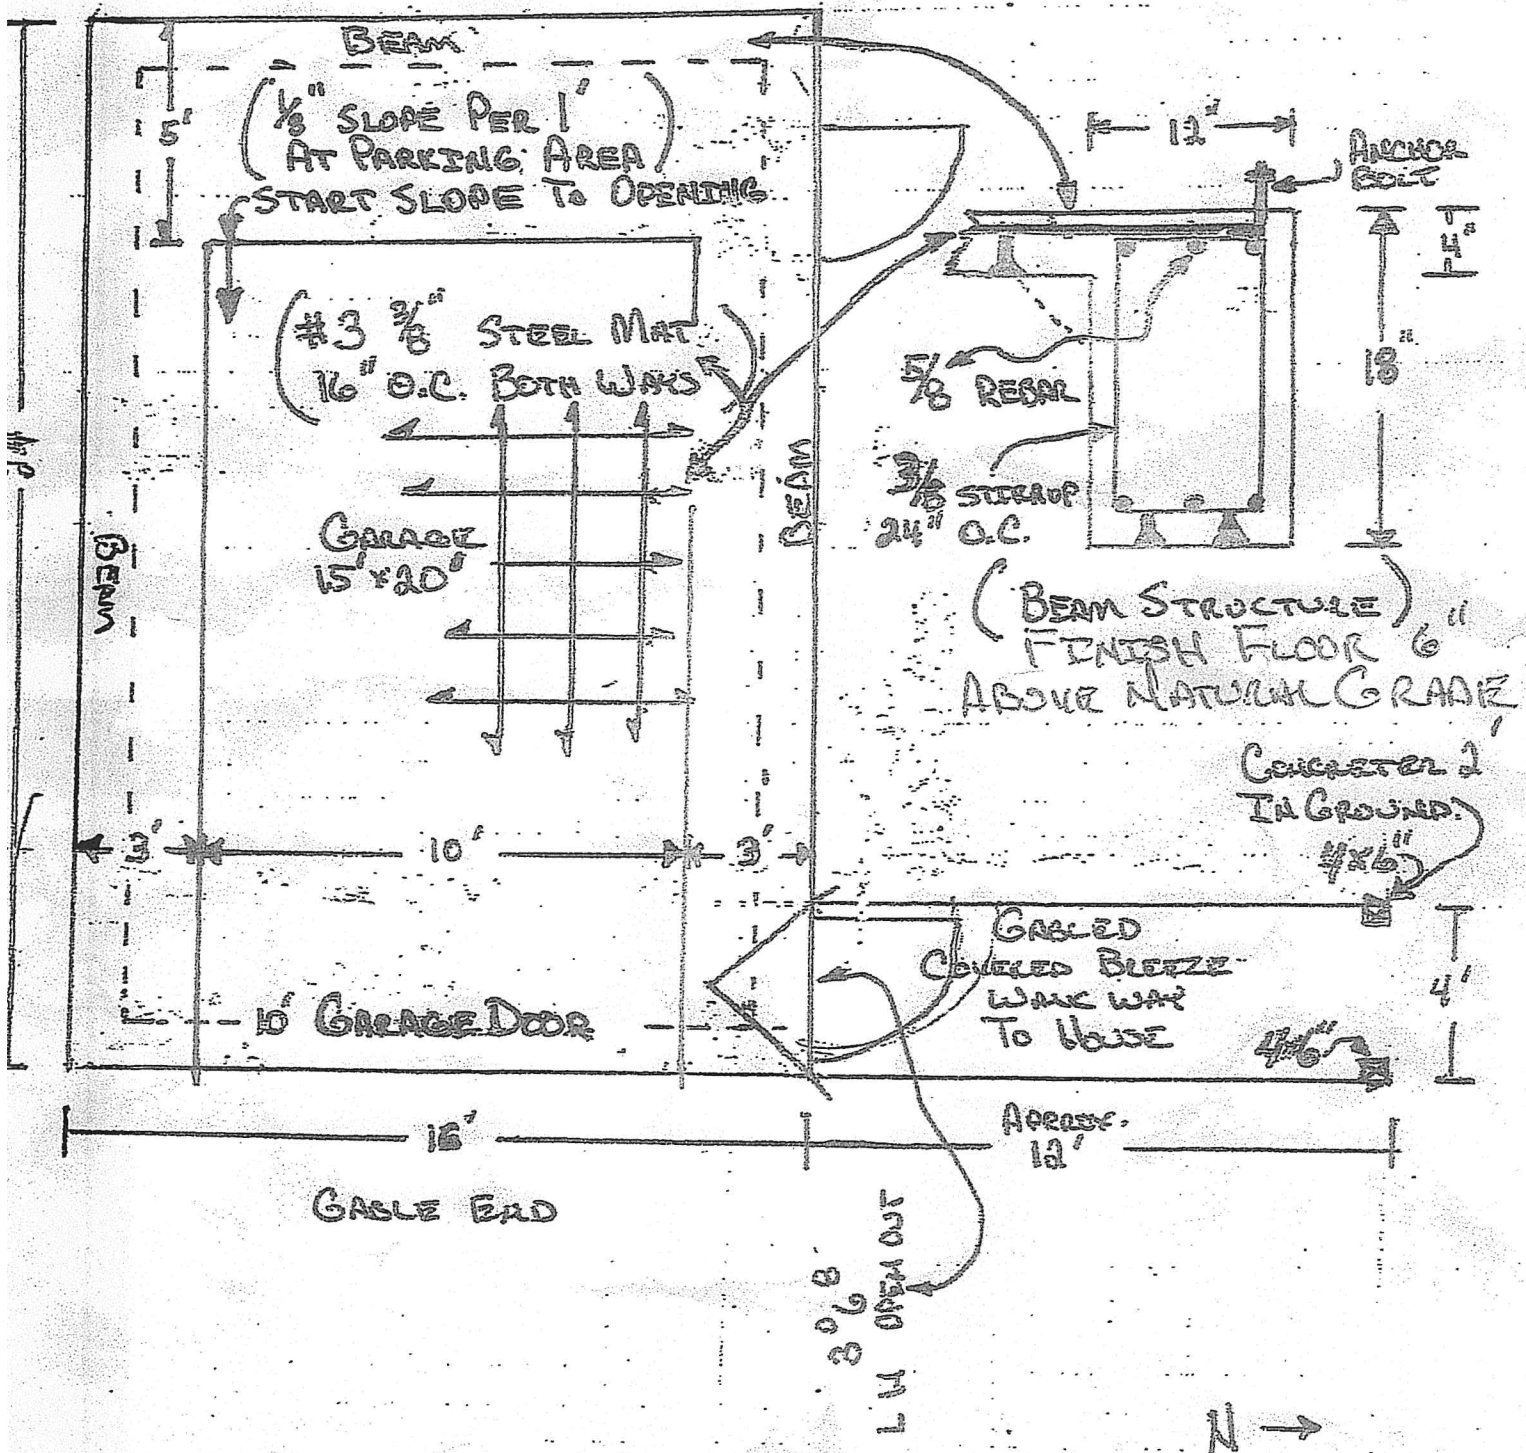 BEAM
5'
(1/8" SLOPE PER 1'
AT PARKING AREA)
START SLOPE TO OPENING
(#3 3/8" STEEL MAT
16" O.C. BOTH WAYS)
GARAGE
15'x20'
BEAM
BEAM
3'
10'
3'
10' GARAGE DOOR
GABLE END
12"
ANCHOR
BOLT
4"
18"
5/8 REBAR
3/8 STIRRUP
24" O.C.
(BEAM STRUCTURE)
FINISH FLOOR 6"
ABOVE NATURAL GRADE
2'
IN GROUND.
4x6"
GABLED
COVERED BREEZE
WALK WAY
TO HOUSE
4x6"
4'
APPROX.
12'
3⁰ 6⁸
L H OPEN OUT
N